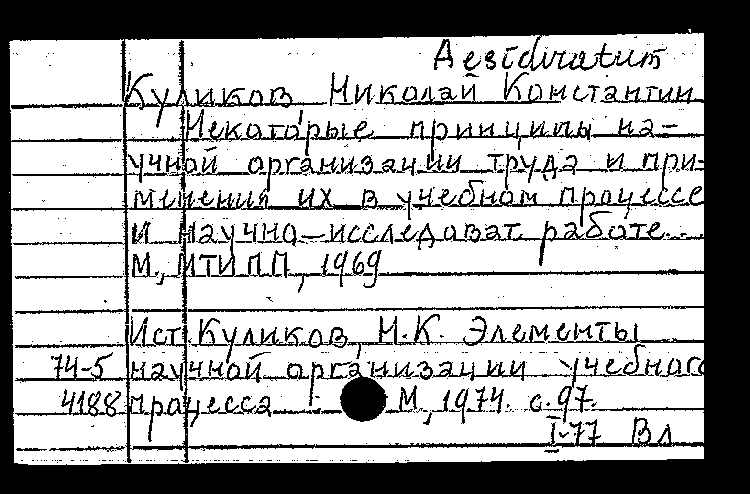 Desideratum
Куликов Николай Константин
Некоторые принципы на-
учной организации труда и при-
менения их в учебном процессе
и научно-исследоват. работе...
М., МТИПП, 1969
Ист. Куликов, Н.К. Элементы
74-5 научной организации учебного
4188 процесса... М., 1974. с. 97.
I-77 Вл